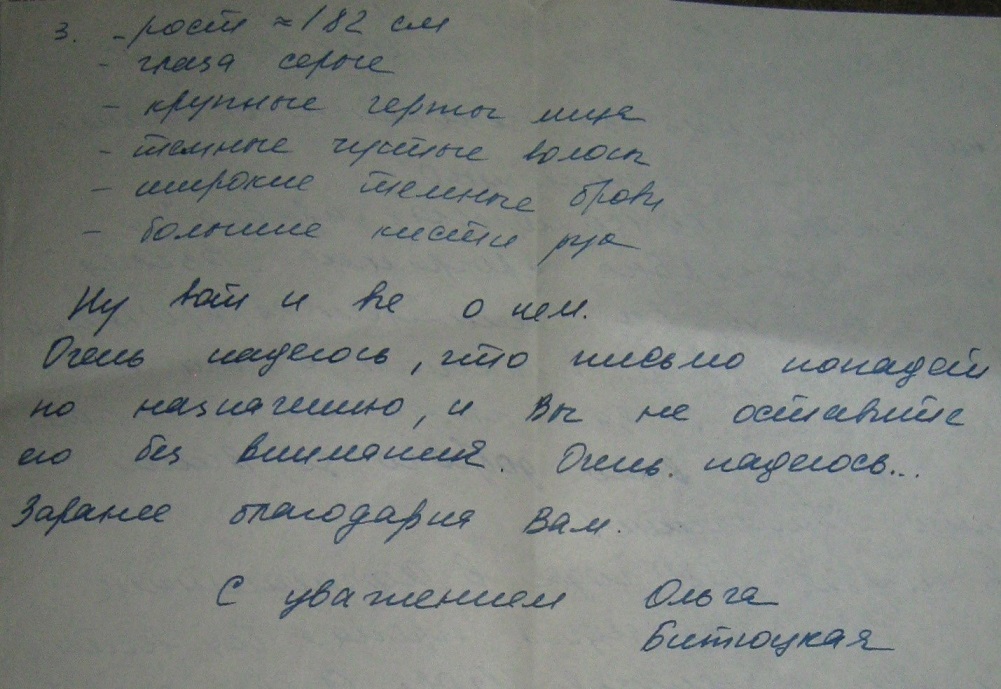 3. - рост ≈ 182 см
- глаза серые
- крупные черты лица
- темные густые волосы
- широкие темные брови
- большие кисти рук
Ну вот и все о нем.
Очень надеюсь, что письмо попадет
по назначению, и Вы не оставите
его без внимания. Очень надеюсь...
Заранее благодарная Вам.
С уважением Ольга
Битюцкая